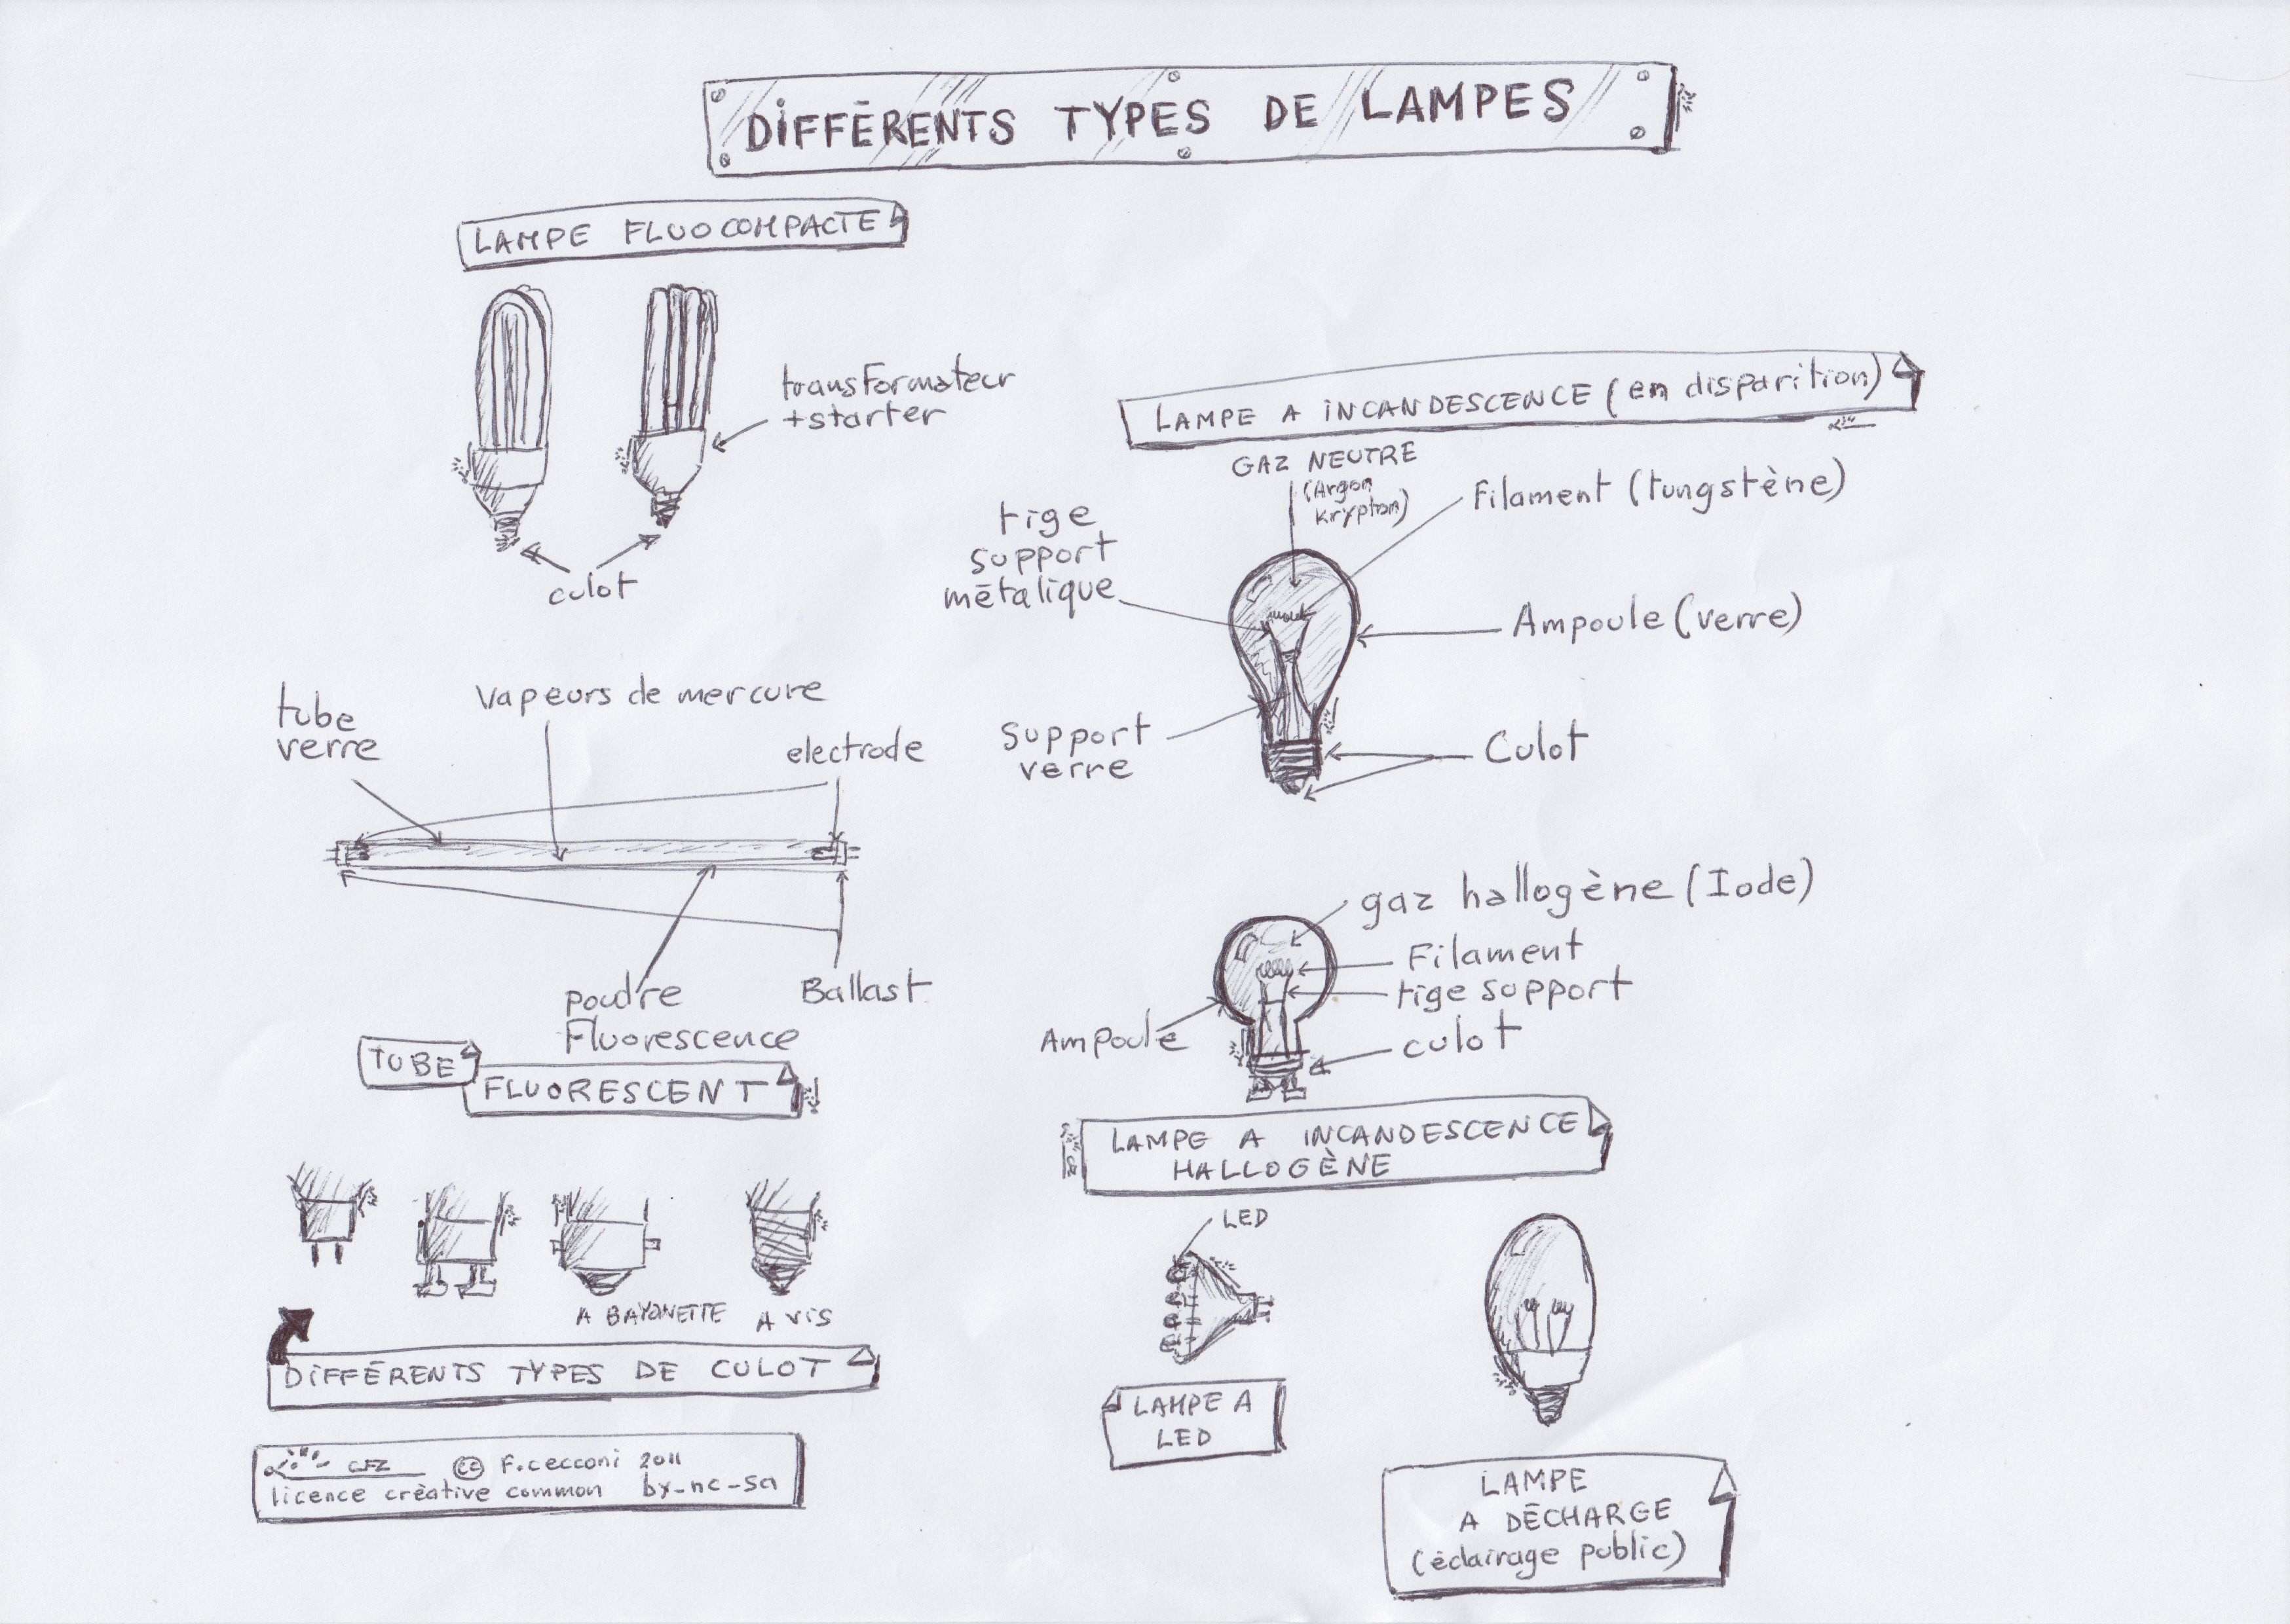 DIFFÉRENTS TYPES DE LAMPES
LAMPE FLUOCOMPACTE
transformateur
+starter
culot
LAMPE A INCANDESCENCE (en disparition)
GAZ NEUTRE
(Argon
Krypton)
Filament (tungstène)
tige
support
métalique
Ampoule (verre)
support
verre
Culot
tube
verre
vapeurs de mercure
electrode
poudre
Fluorescence
Ballast
TUBE
FLUORESCENT
gaz hallogène (Iode)
Filament
tige support
culot
Ampoule
LAMPE A INCANDESCENCE
HALLOGÈNE
A BAYONETTE
A VIS
DIFFÉRENTS TYPES DE CULOT
LED
LAMPE A
LED
LAMPE
A DÉCHARGE
(éclairage public)
CFZ cc F.cecconi 2011
licence créative common by-nc-sa